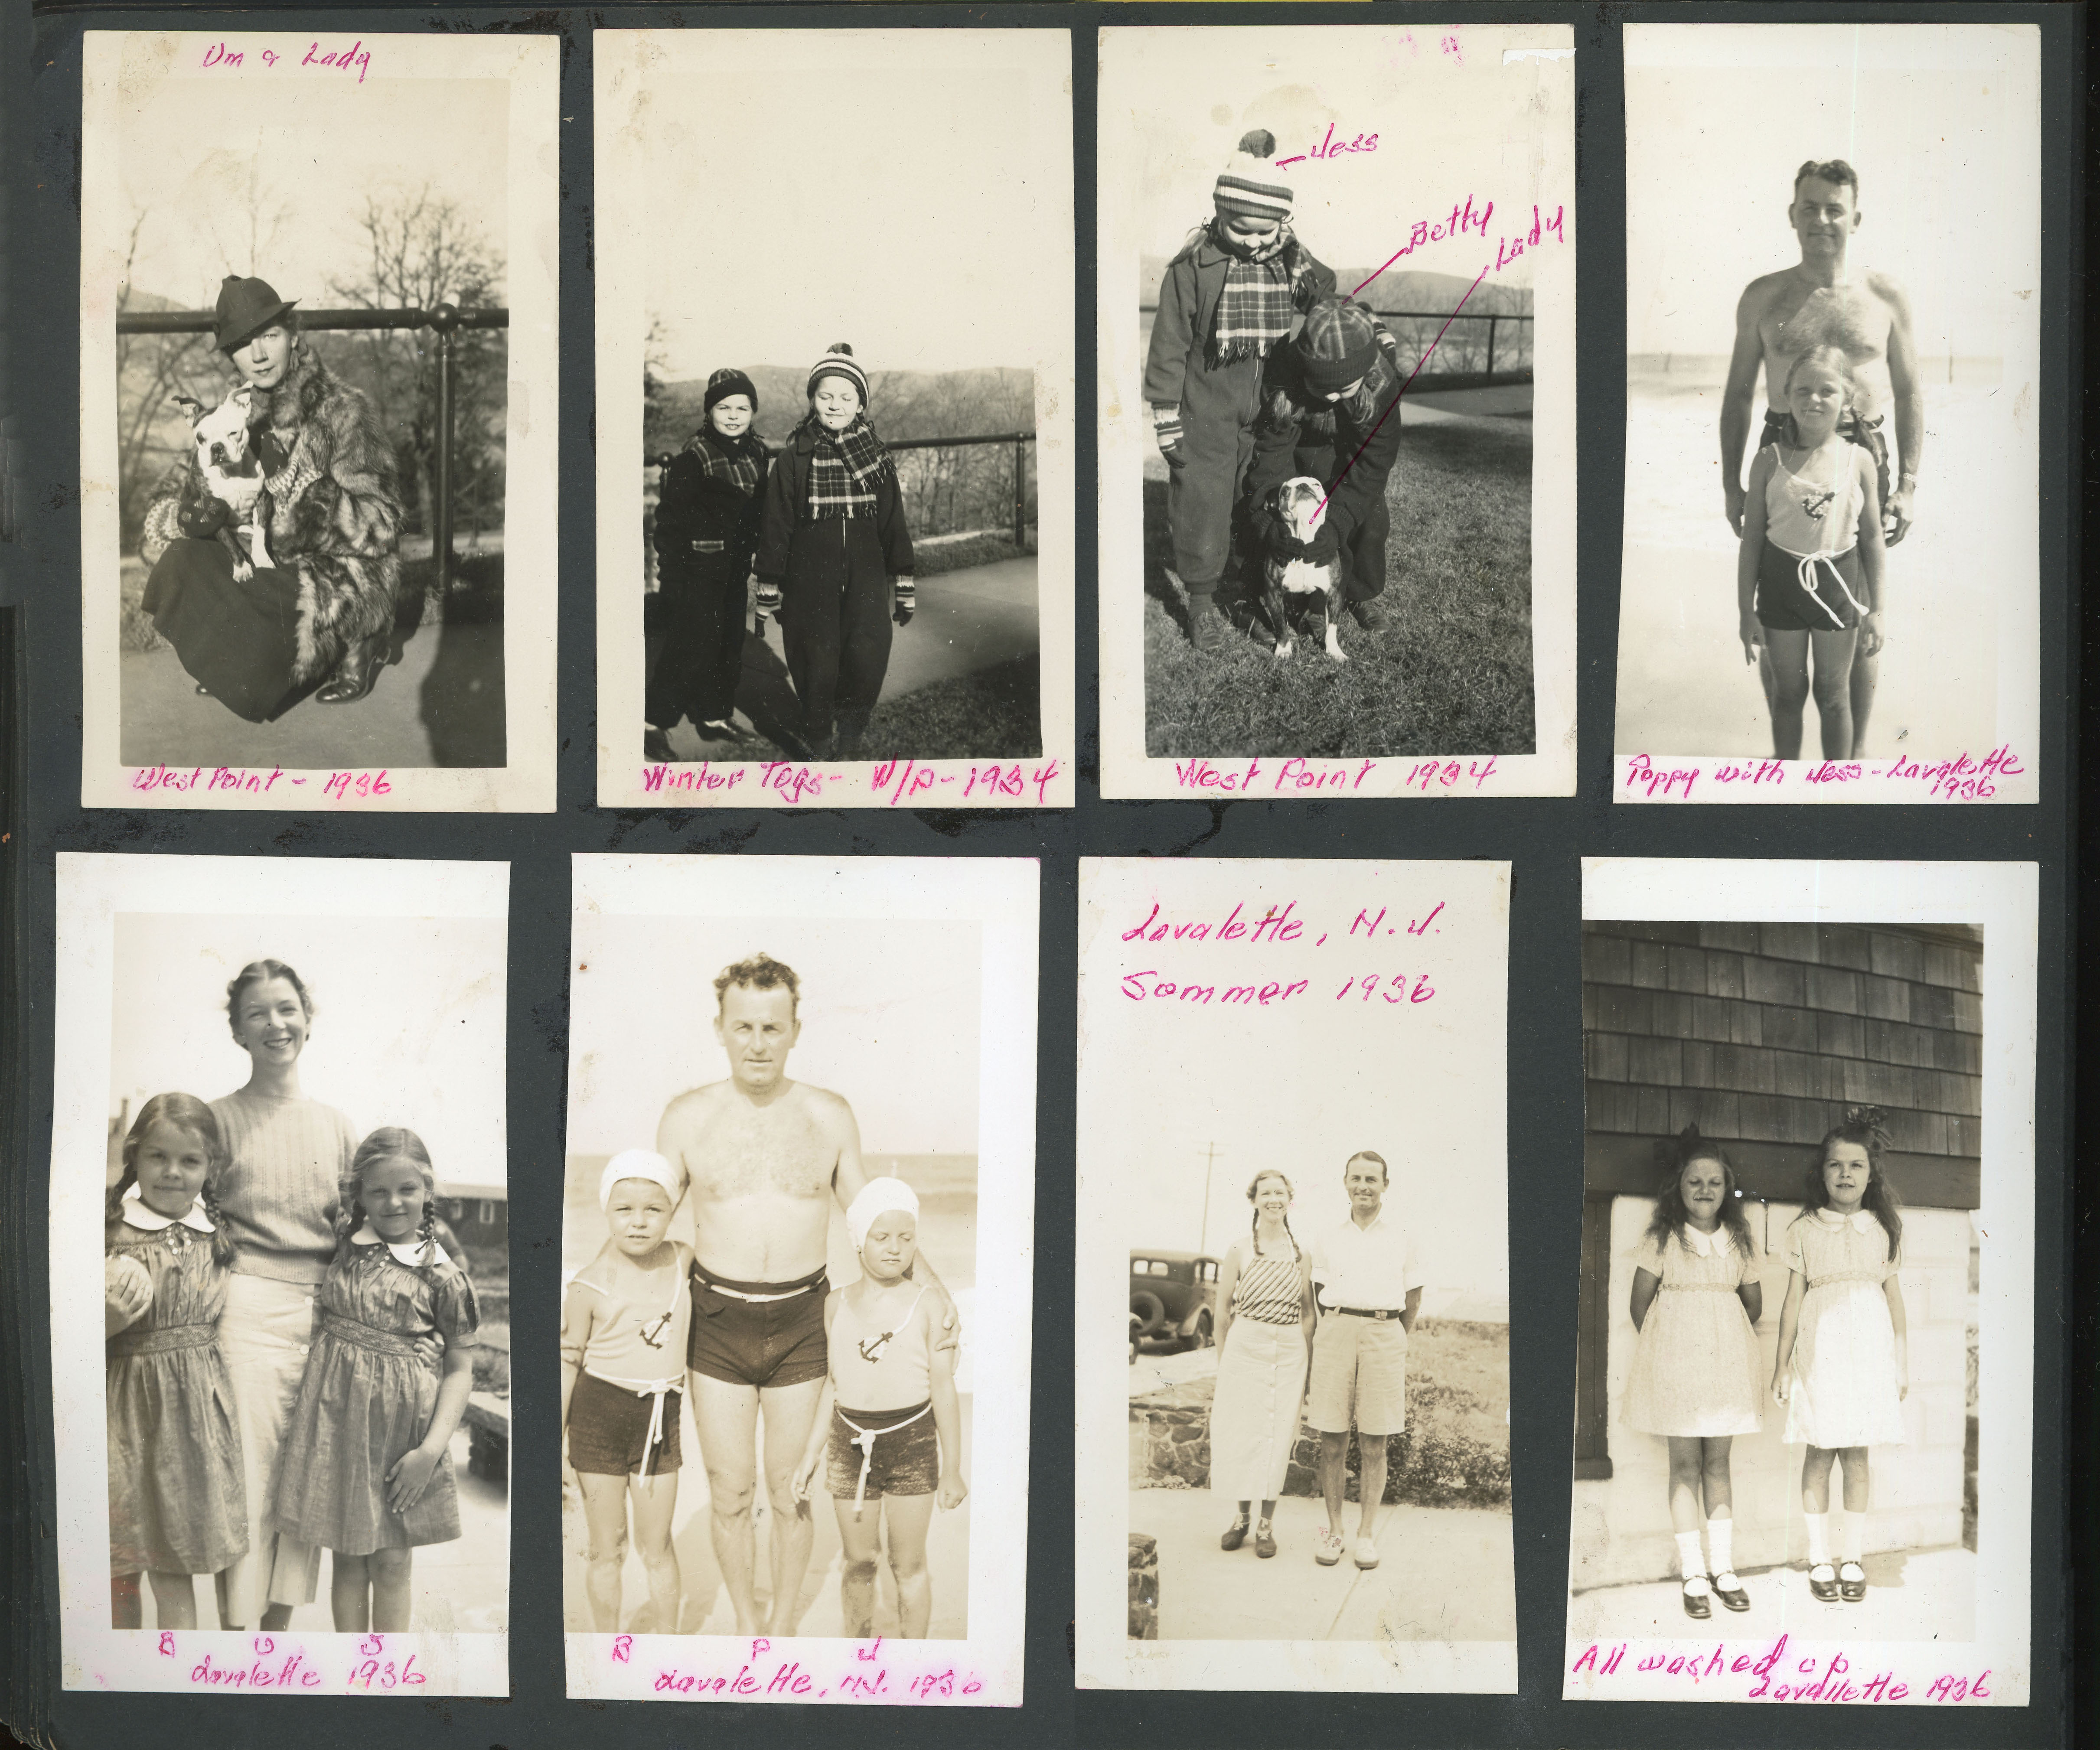 Um & Lady
West Point - 1936
Winter Togs - W/P - 1934
Jess
Betty
Lady
West Point 1934
Poppy with Jess - Lavalette
1936
B U J
Lavalette 1936
B P J
Lavalette, N.J. 1936
Lavalette, N.J.
Sommer 1936
All washed up
Lavallette 1936